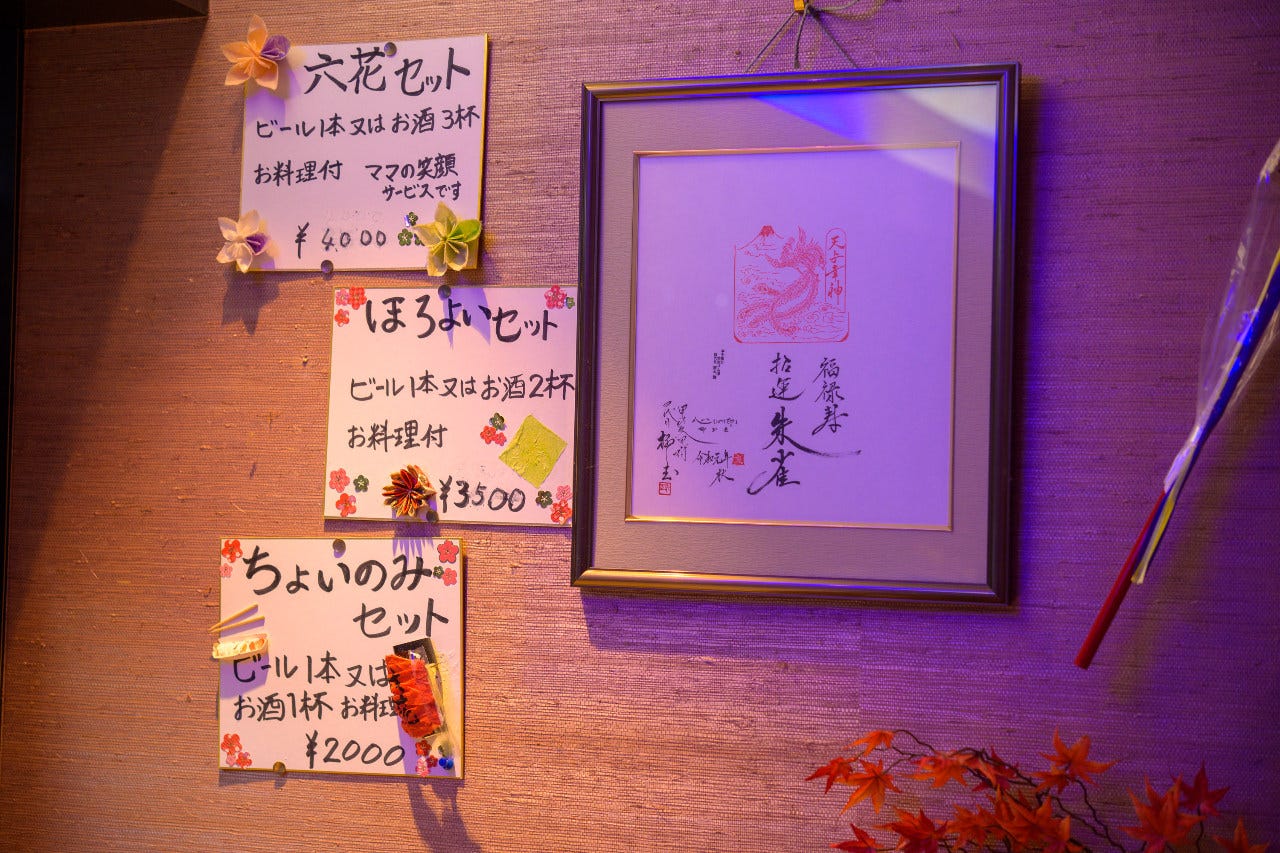 六花セット
ビール1本又はお酒3杯
お料理付 ママの笑顔
サービスです
¥4000
ほろよいセット
ビール1本又はお酒2杯
お料理付
¥3500
ちょいのみ
セット
ビール1本又は
お酒1杯 お料理
¥2000
福禄寿
招運朱雀
令和元年
秋